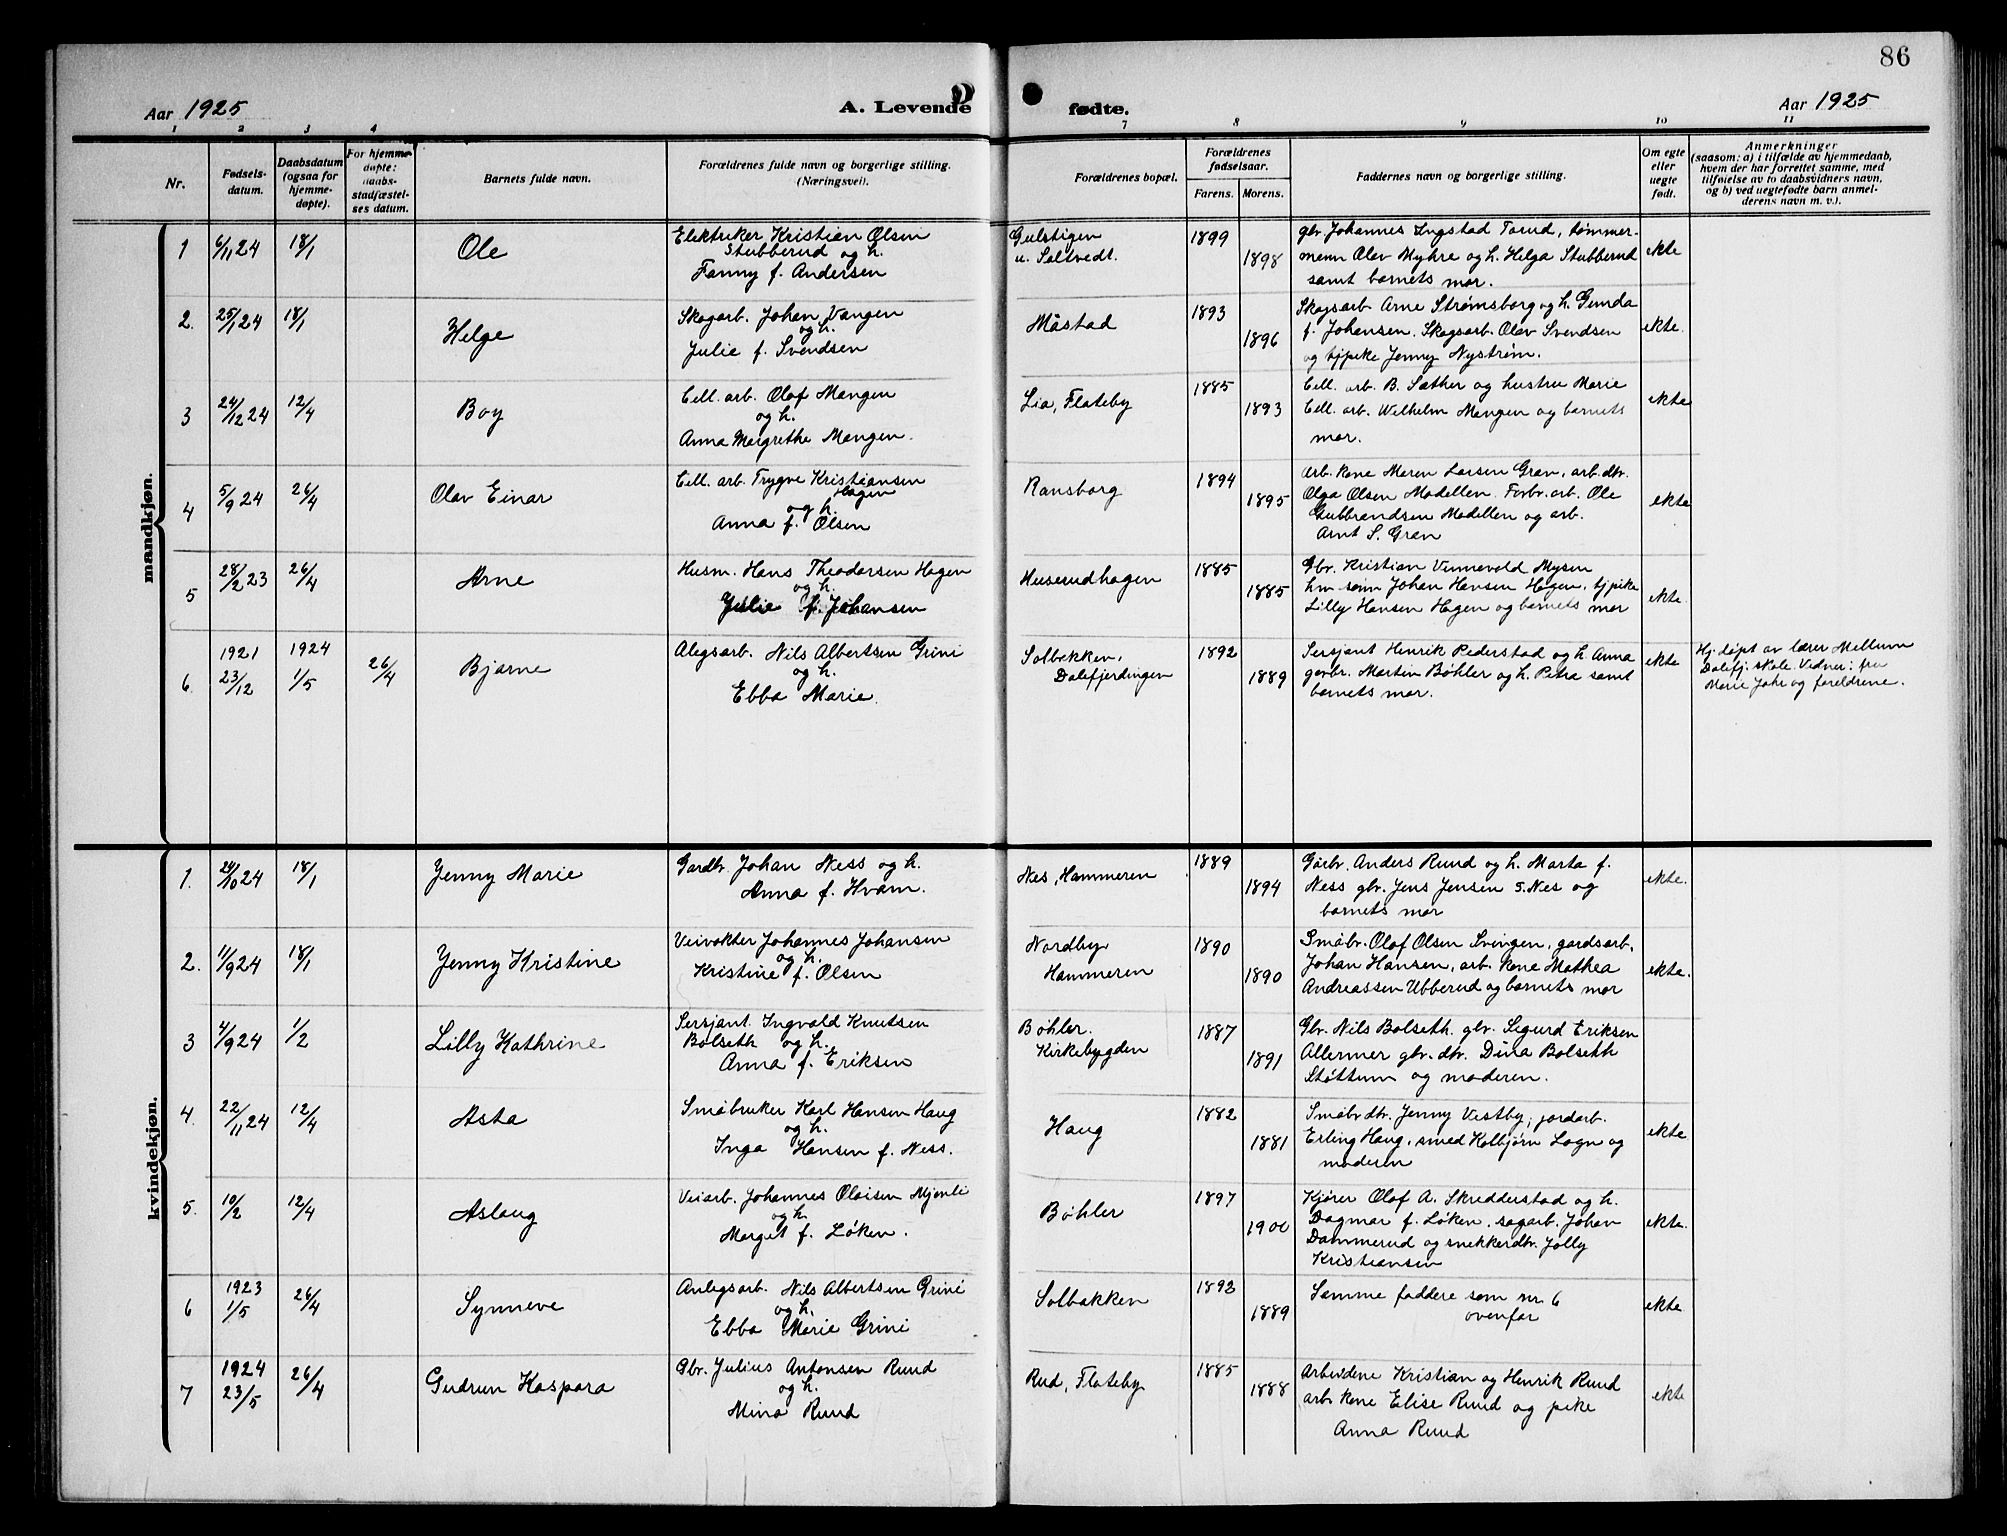 86
Aar 1925
A. Levende
fødte.
Aar 1925
1 2 3 4 7 8 9 10 11
Nr.
Fødsels-
datum.
Daabsdatum
(ogsaa for
hjemme-
døpte).
For hjemme-
døpte:
daabs-
stadfæstel-
ses datum.
Barnets fulde navn.
Forældrenes fulde navn og borgerlige stilling.
(Næringsvei).
Forældrenes bopæl.
Forældrenes
fødselsaar.
Farens. Morens.
Faddernes navn og borgerlige stilling.
Om egte
eller
uegte
født.
Anmerkninger
(saasom: a) i tilfælde av hjemmedaab,
hvem der har forrettet samme, med
tilføielse av to daabsvidners navn,
og b) ved uegtefødte barn anmel-
derens navn m. v.).
mandkjøn.
1 6/11 24 18/1
Ole
Elektriker Kristian Olsen
Stubberud og h.
Fanny f. Andersen
Gulstigen
u. Saltvedt.
1899
1898
gbr Johannes Ingstad Torud, tømmer-
mann Olav Myhre og h. Helga Stubberud
samt barnets mor.
ekte
2. 25/1 24 18/1
Helge
Skogarb. Johan Vangen
og h.
Julie f. Svendsen
Måstad
1893
1896
Skogsarb Arne Strømsborg og h. Gunda
f. Johansen. Skogsarb. Olav Svendsen
og tjpike Jenny Nystrøm.
ekte.
3 24/12 24 12/4
Boy
Cell. arb. Olaf Mangen
og h.
Anna Margrethe Mangen.
Lia, Flateby
1885
1893
Cell. arb. B. Sæther og hustru Marie
Cell. arb. Wilhelm Mangen og barnets
mor.
ekte
4 5/9 24 26/4
Olav Einar
Cell. arb. Trygve Kristiansen
Hagen
og h.
Anna f. Olsen
Ransborg
1894
1895
Arb. kone Maren Larsen Gran, arb. dtr.
Olga Olsen Modellen. Forbr. arb. Ole
Gubbrandsen Modellen og arb.
Arnt S. Gran
ekte
5 28/2 23 26/4
Arne
Husm. Hans Theodorsen Hagen
og h.
Julie f. Johansen
Huserudhagen
1885
1885
Gbr. Kristian Vinnevold Mysen
hm sønn Johan Hansen Hagen, tjpike
Lilly Hansen Hagen og barnets mor
ekte.
6. 1921 23/12 1924 1/5 26/4
Bjarne
Alegsarb. Nils Albertsen Grini
og h.
Ebba Marie.
Solbakken,
Dalefjerdingen
1892
1889
Sersjant Henrik Pederstad og h. Anna
garbr. Martin Bøhler og h. Petra samt
barnets mor.
ekte
Hj. døpt av lærer Mellum
Dalefj. skole. Vidner: fru
Marie Jahr og foreldrene.
kvindekjøn.
1. 24/10 24 18/1
Jenny Marie
Gardbr Johan Ness og h.
Anna f. Hvam.
Nes, Hammeren
1889
1894
Garbr. Anders Ruud og h. Marta f.
Ness gbr. Jens Jensen s. Nes og
barnets mor
ekte.
2. 11/9 24 18/1
Jenny Kristine
Veivokter Johannes Johansen
og h.
Kristine f. Olsen
Nordby
Hammeren
1890
1890
Småbr. Olof Olsen Svingen, gardsarb.
Johan Hansen, arb. kone Mathea
Andreassen Ubberud og barnets mor
ekte.
3 4/9 24 1/2
Lilly Kathrine
Sersjant. Ingvald Knutsen
Bolseth og h.
Anna f. Eriksen
Bøhler.
Kirkebygden
1887
1891
Gbr. Nils Bolseth. gbr. Sigurd Eriksen
Allermer gbr. dtr. Dina Bolseth
Støttum og moderen.
4. 22/11 24 12/4
Asta
Småbruker Karl Hansen Haug
og h.
Inga Hansen f. Ness.
Haug
1882
1881
Småbr dtr. Jenny Vestby, jordarb.
Erling Haug, smed Kolbjørn Logn og
moderen
ekte
5. 10/2 12/4
Aslaug
Veiarb. Johannes Olaisen Mjenli
og h.
Margit f. Løken.
Bøhler
1897
1900
Kjører Olaf A. Skredderstad og h.
Dagmar f. Løken. sagarb. Johan
Dammerud og snekkerdtr. Jolly
Kristiansen
ekte.
6 1923 1/5 26/4
Synneve
Anlegsarb. Nils Albertsen Grini
og h.
Ebba Marie Grini
Solbakken
1892
1889
Samme faddere som nr. 6
ovenfor
ekte
7 1924 23/5 26/4
Gudrun Kaspara
Gbr. Julius Antonsen Ruud
og h.
Mina Ruud
Rud, Flateby
1885
1888
Arbeiderne Kristian og Henrik Ruud
arb kone Elise Ruud og pike
Anna Ruud
ekte